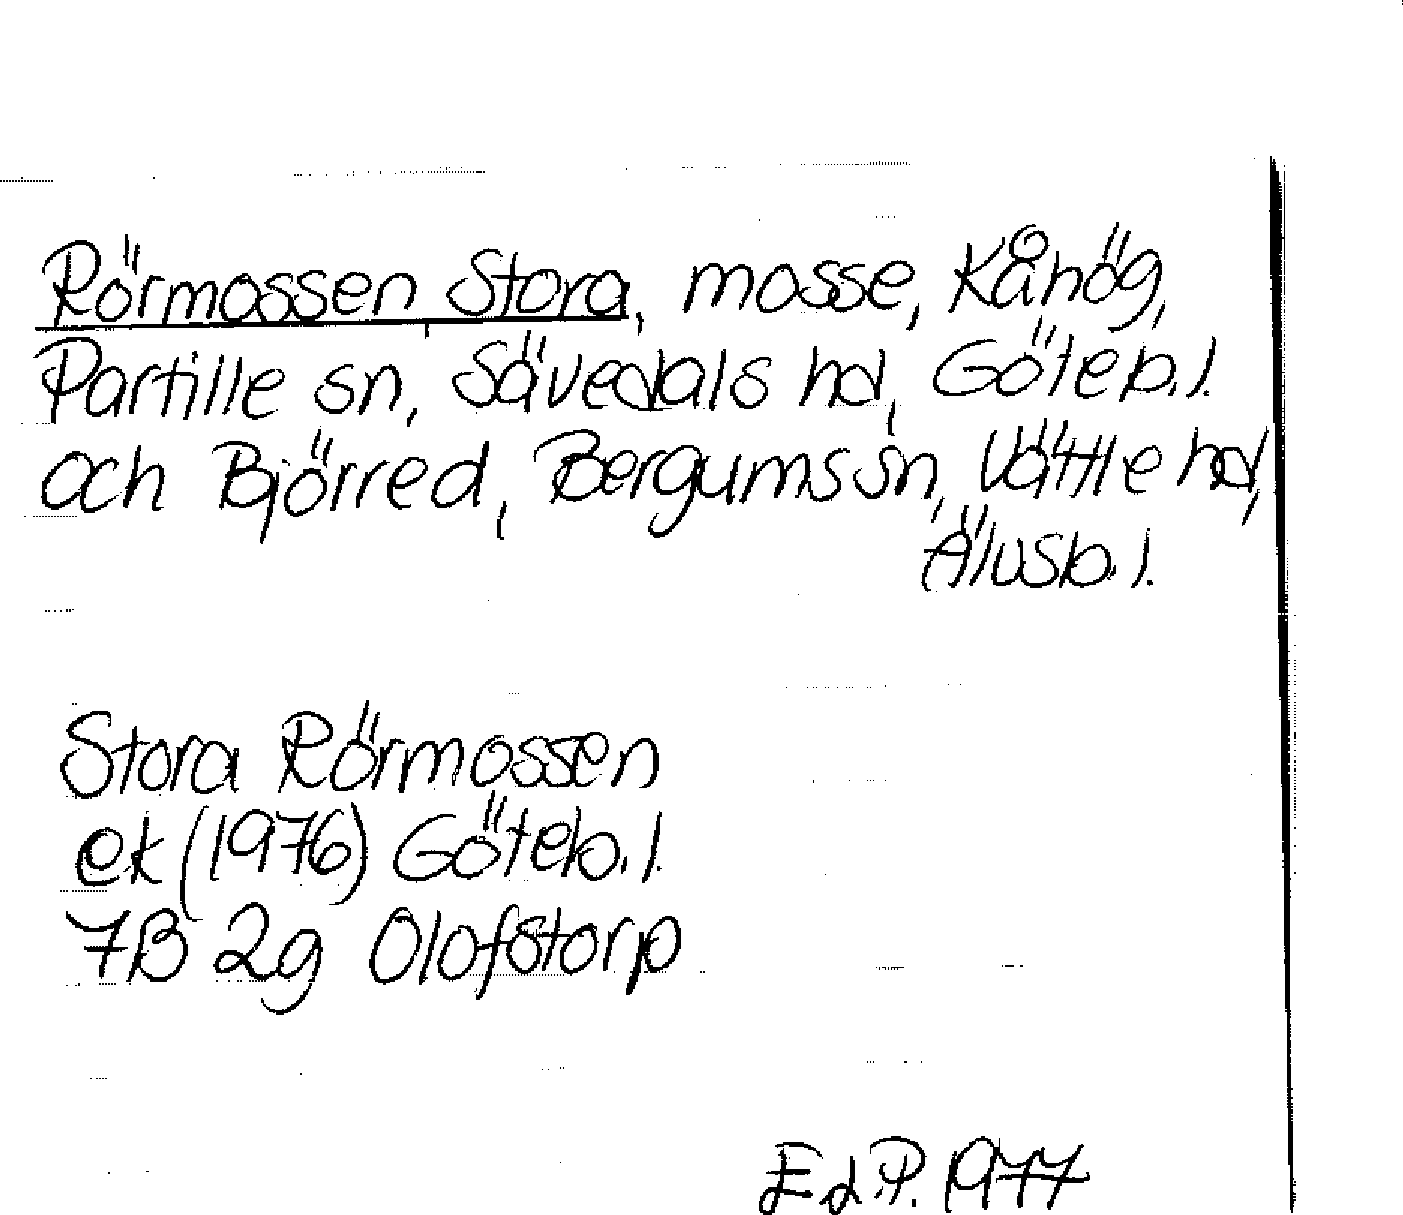 Rörmossen Stora, mosse, Kåhög,
Partille sn, Sävedals hd, Göteb. l.
och Björred, Bergums sn, Vättle hd,
Älvsb. l.
Stora Rörmossen
ek (1976) Göteb. l.
7B 2g Olofstorp
E d. P. 1977